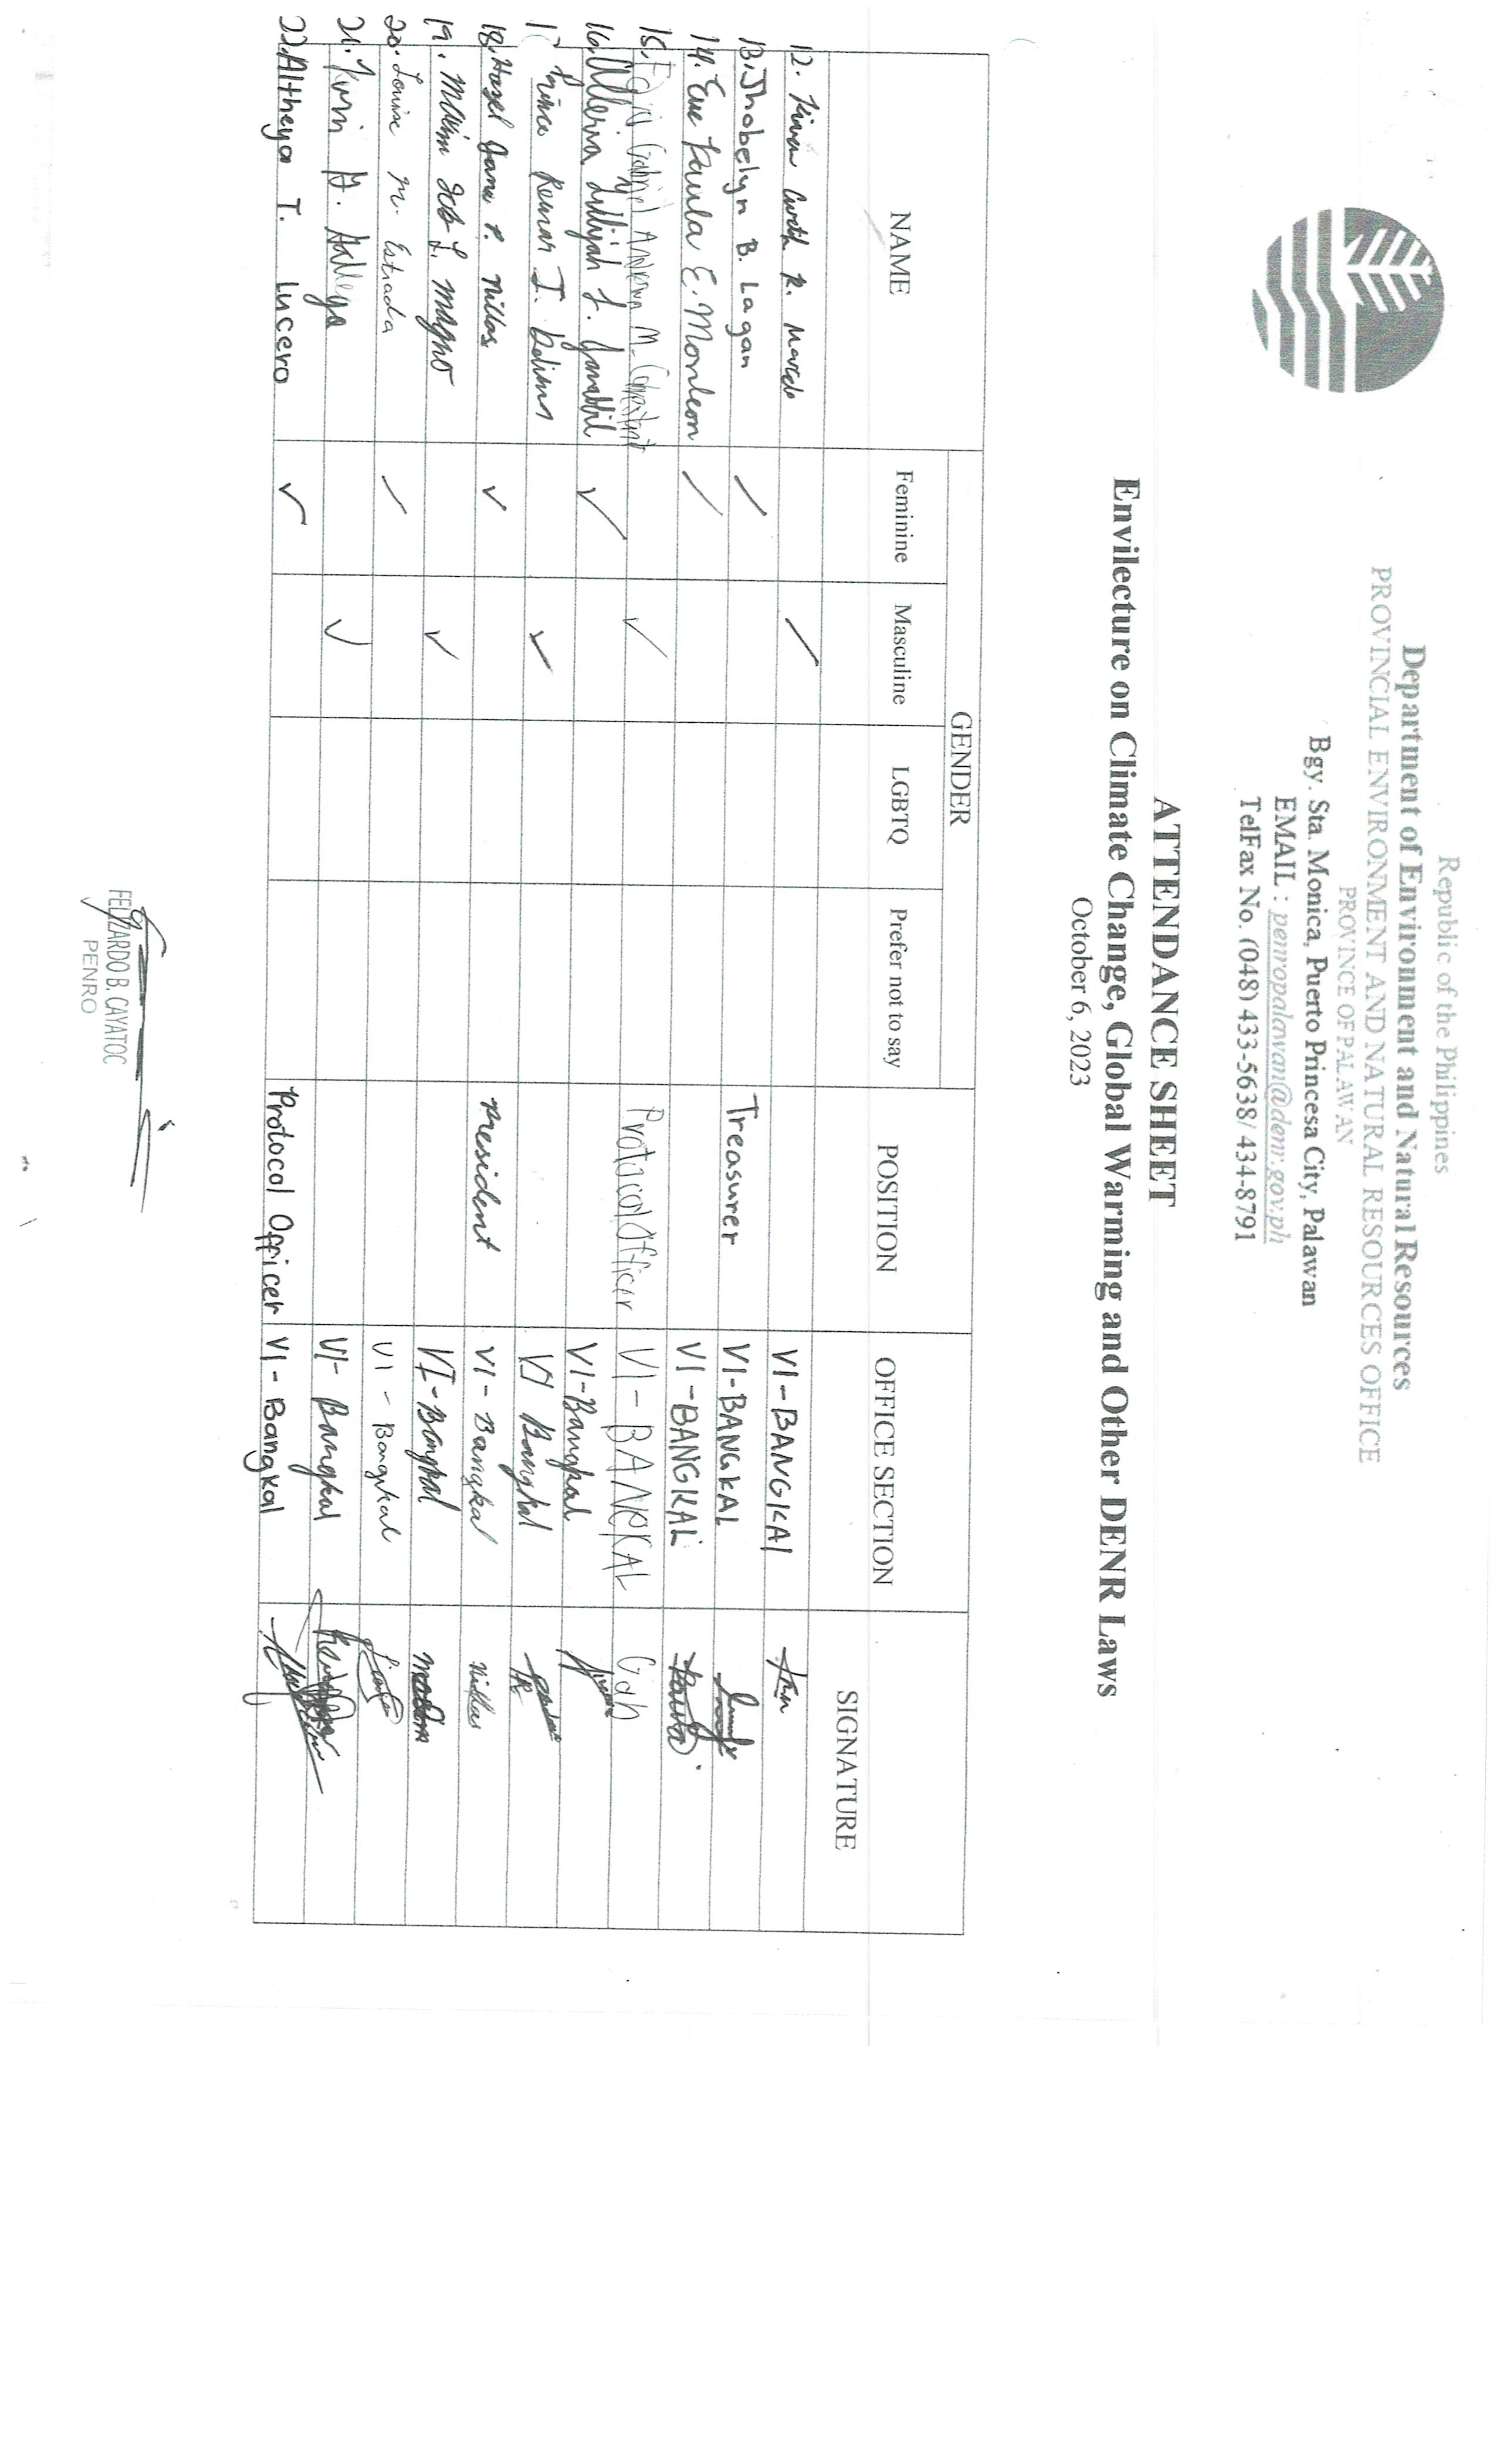 Republic of the Philippines
Department of Environment and Natural Resources
PROVINCIAL ENVIRONMENT AND NATURAL RESOURCES OFFICE
PROVINCE OF PALAWAN
Bgy. Sta. Monica, Puerto Princesa City, Palawan
EMAIL : penropalawan@denr.gov.ph
TelFax No. (048) 433-5638/ 434-8791
ATTENDANCE SHEET
Envilecture on Climate Change, Global Warming and Other DENR Laws
October 6, 2023
NAME GENDER POSITION OFFICE SECTION SIGNATURE
Feminine Masculine LGBTQ Prefer not to say
12. R. ✓ VI-BANGKAl
13. Jhobelyn B. Lagan ✓ Treasurer VI-BANGKAL
14. Eue Paula E. Monleon ✓ VI-BANGKAL
15. Gabriel M. ✓ Protocol Officer VI-BANGKAL Gab
16. ✓ VI-Bangkal
Prince I. ✓ VI Bangkal
18. Hazel Jane P. Nillas ✓ President VI-Bangkal Nillas
19. L. Magno ✓ VI-Bangkal
20. Louise M. Estrada ✓ VI-Bangkal
21. ✓ VI-Bangkal
22. Altheya T. Lucero ✓ Protocol Officer VI-Bangkal
FELIZARDO B. CAYATOC
PENRO